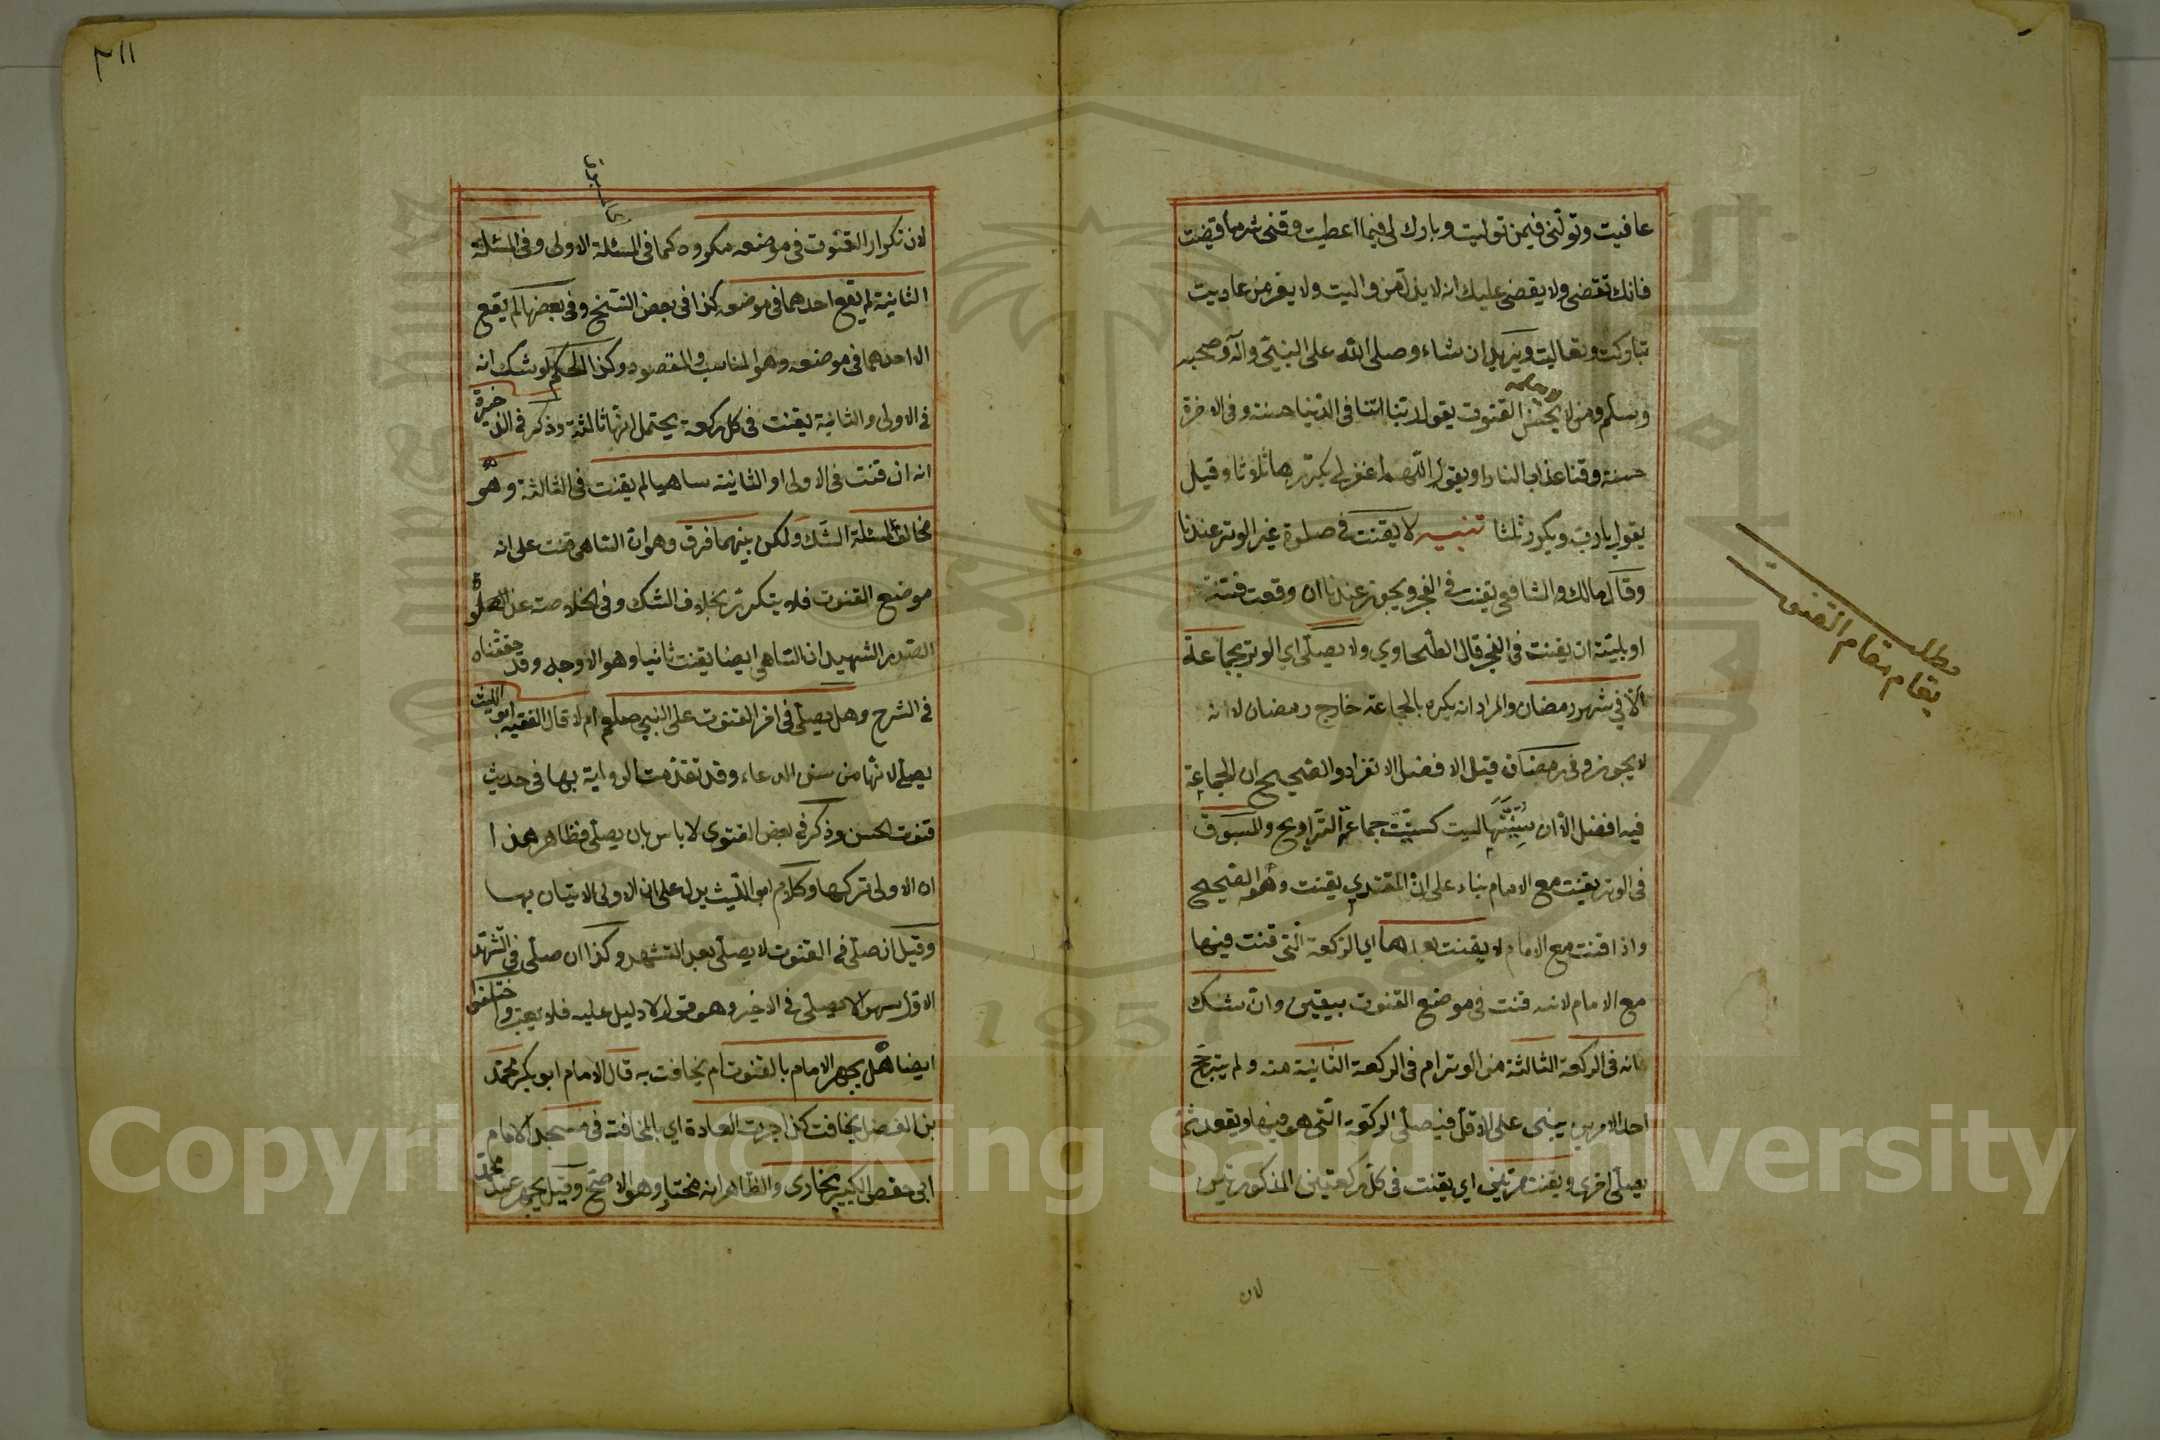 عافيت وتولني فيمن توليت وبارك لي فيما اعطيت وقني شر ما قضيت
فانك تقضي ولا يقضى عليك انه لا يذل من واليت ولا يعز من عاديت
تباركت وتعاليت ويزيد ان شاء وصلى الله على النبي وآله وصحبه
وسلم ومن لا يحسن القنوت يقول ربنا اتنا في الدنيا حسنة وفي الاخرة
حسنة وقنا عذاب النار او يقول اللهم اغفر لي يكررها ثلاثا وقيل
يقول يا رب ويكرر ثلثا تنبيه لا يقنت في صلوة غير الوتر عندنا
وقال مالك والشافعي يقنت في الفجر ويجوز عندنا ان وقعت فتنة
او بلية ان يقنت في الفجر قال الطحاوي ولا يصلى اي الوتر بجماعة
الا في شهر رمضان والمراد انه يكره بالجماعة خارج رمضان لا انه
لا يجوز وفي رمضان قيل الافضل الانفراد والصحيح ان الجماعة
فيه افضل الا ان سنيتها ليست كسنية جماعة التراويح والمسبوق
في الوتر يقنت مع الامام بناء على ان المقتدي يقنت وهو الصحيح
واذا قنت مع الامام لا يقنت بعدها اي الركعة التي قنت فيها
مع الامام لانه قنت في موضع القنوت بيقين وان شك
انه في الركعة الثالثة من الوتر ام في الركعة الثانية منه ولم يترجح
احد الامرين يبني على الاقل فيصلي الركعة التي هو فيها ويقعد ثم
يصلي اخرى ويقنت مرتين اي يقنت في كل ركعتين المذكورتين
لان
مطلب
مقام القنوت
٣١١
لان تكرار القنوت في موضعه مكروه كما في المسئلة الاولى وفي المسئلة
الثانية لم يقع احدهما في موضعه كذا في بعض النسخ وفي بعضها لم يقع
الا احدهما في موضعه وهو المناسب والمقصود وكذا الحكم لو شك انه
في الاولى والثانية يقنت في كل ركعة يحتمل انها ثالثة وذكر في الذخيرة
انه ان قنت في الاولى او الثانية ساهيا لم يقنت في الثالثة وهو
مخالف لمسئلة الشك ولكن بينهما فرق وهو ان الساهي قنت على انه
موضع القنوت فلا يتكرر بخلاف الشك وفي الخلاصة عن
الصدر الشهيد ان الساهي ايضا يقنت ثانيا وهو الاوجه وقد حققناه
في الشرح وهل يصلى في اخر القنوت على النبي صلعم ام لا قال الفقيه ابو الليث
يصلي لانها من سنن الدعاء وقد تقدمت الرواية بها في حديث
قنوت الحسن وذكر في بعض الفتوى لا باس بان يصلي فظاهر هذا
ان الاولى تركها وكلام ابو الليث يدل على ان الاولى الاتيان بها
وقيل ان صلى في القنوت لا يصلى بعد التشهد وكذا ان صلى في التشهد
الاول سهوا لا يصلى في الاخير وهو قول لا دليل عليه فلا يعبر واختلفوا
ايضا هل يجهر الامام بالقنوت ام يخافت به قال الامام ابو بكر محمد
بن الفضل يخافت كذا جرت العادة اي بالمخافتة في مسجد الامام
ابي حفص الكبير بخارى والظاهر انه مختار وهو الاصح وقيل يجهر عند محمد
Copyright © King Saud University
1957